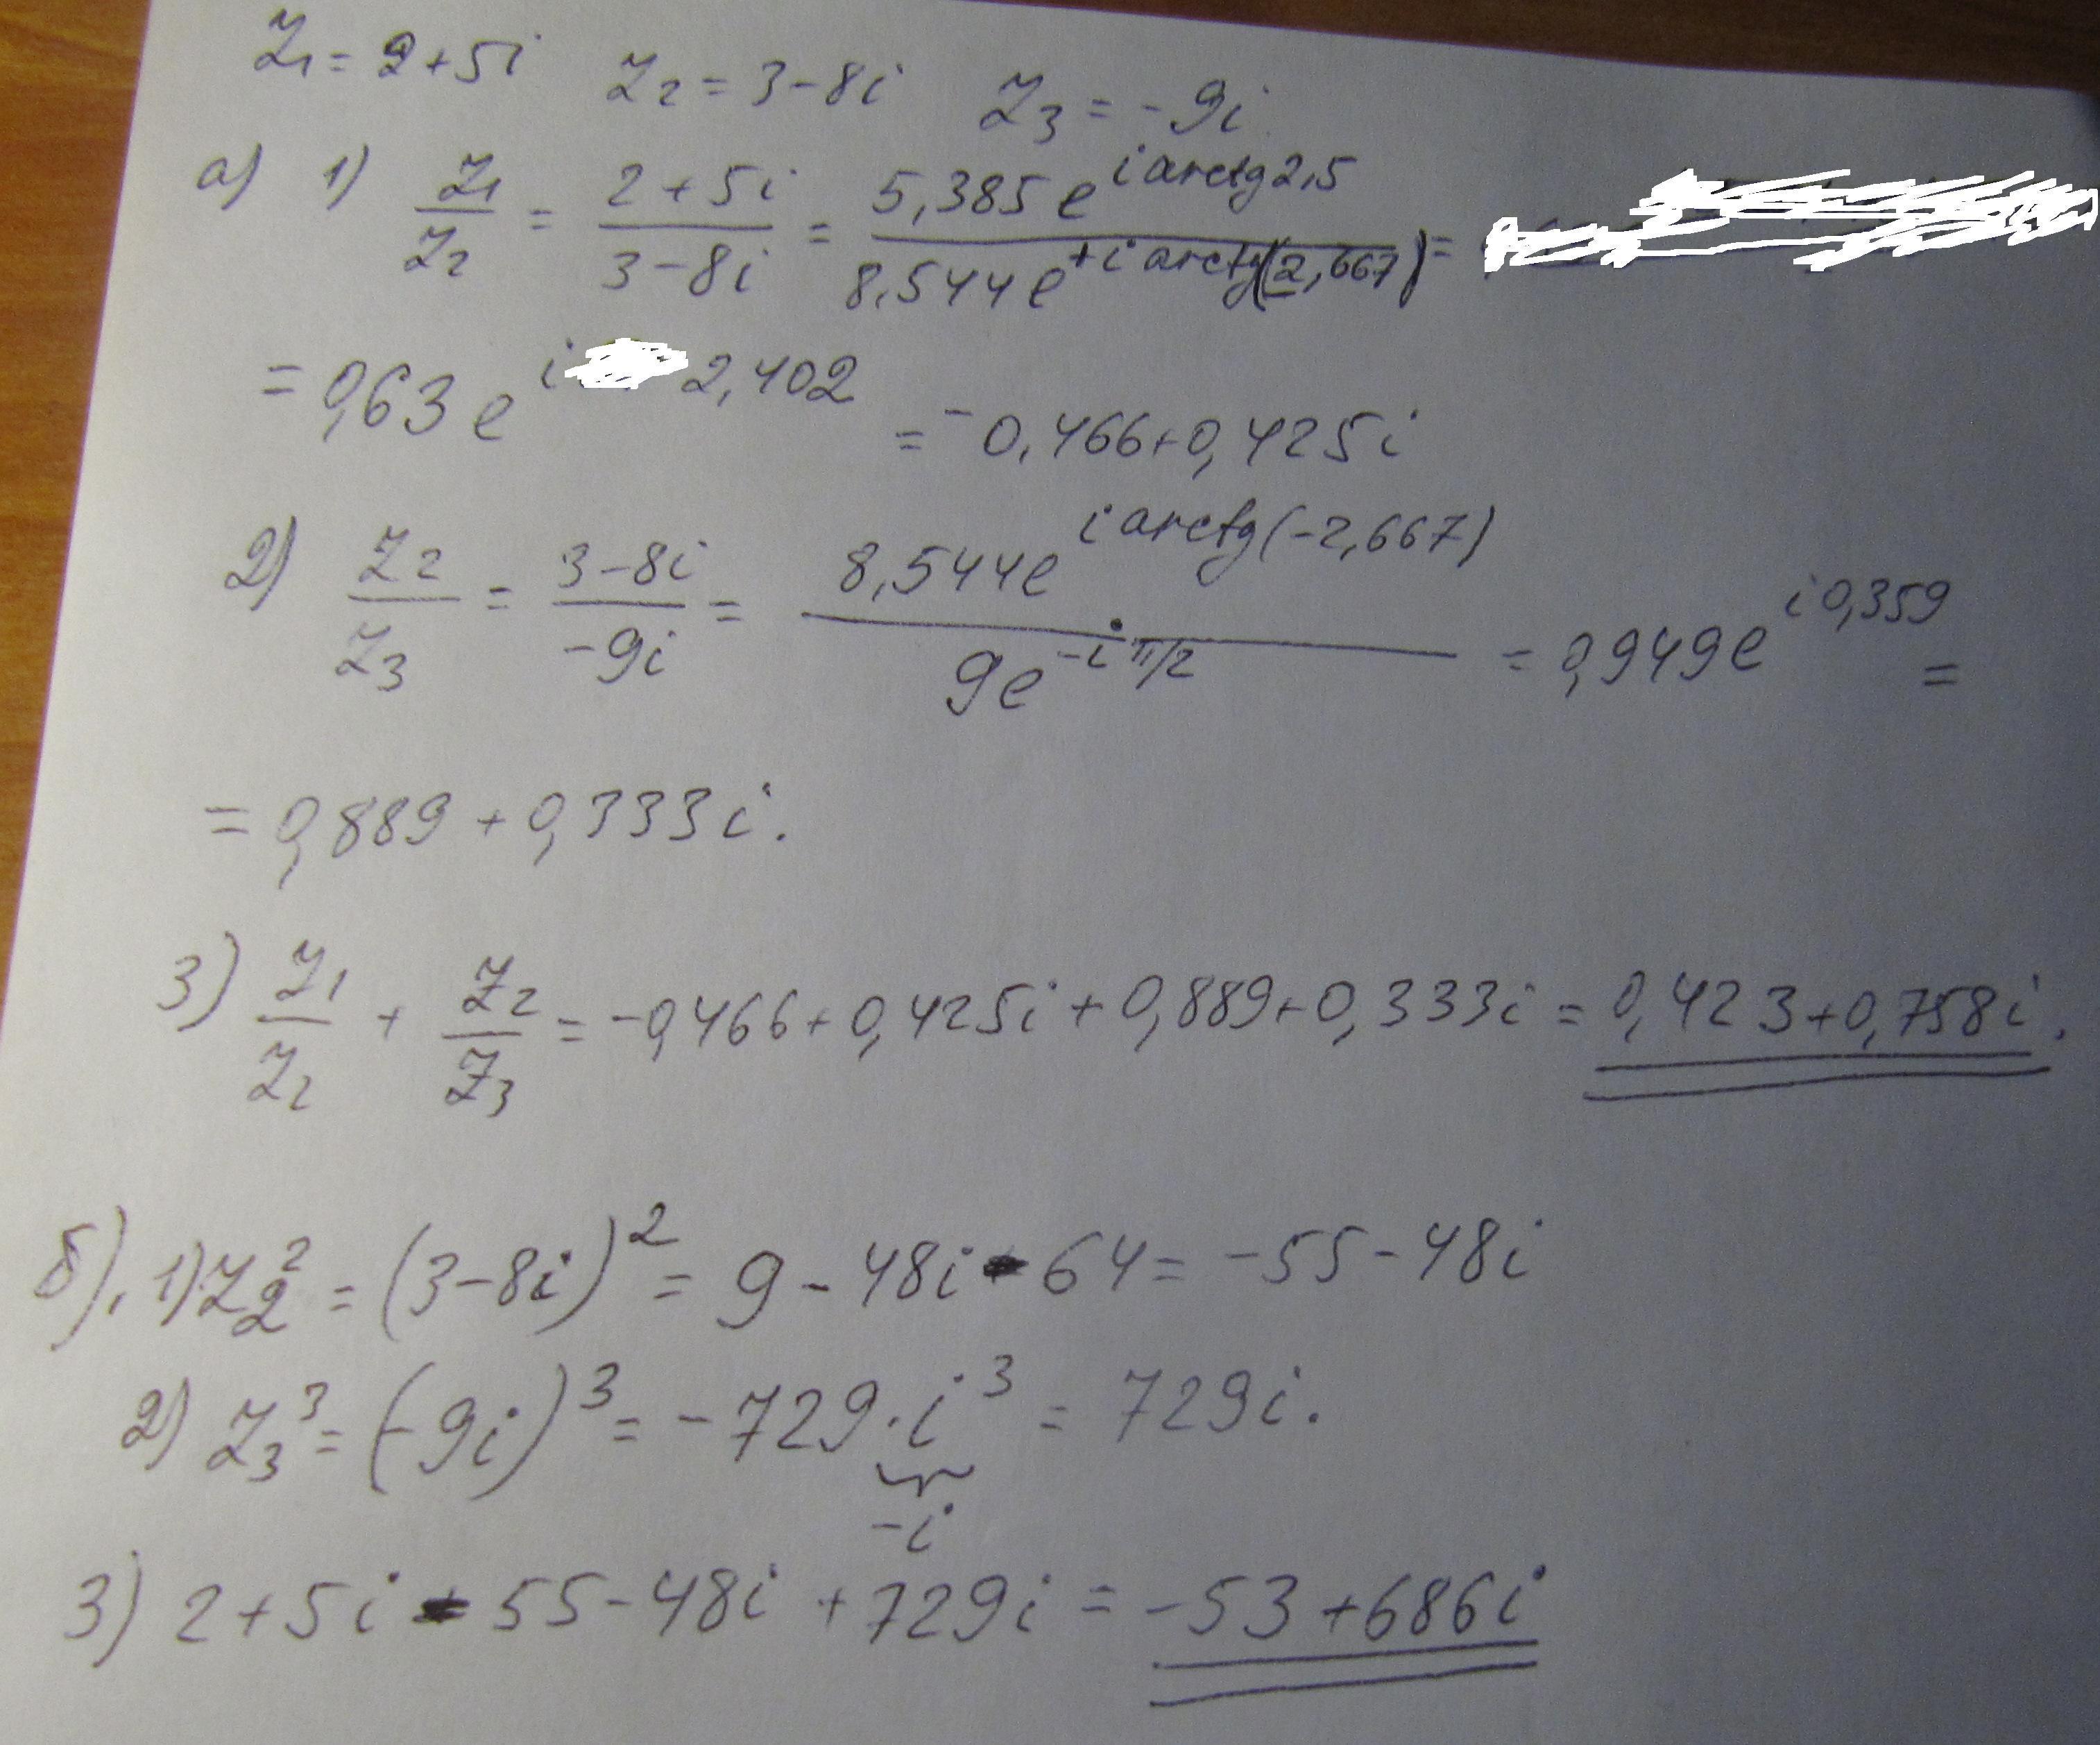 Z₁ = 2+5i   Z₂ = 3-8i   Z₃ = -9i
а) 1) Z₁/Z₂ = (2+5i)/(3-8i) = 5,385 e^(i arctg 2,5) / 8,544 e^(+i arctg(2,667)) =
= 0,63 e^(i 2,402) = -0,466+0,425i
2) Z₂/Z₃ = (3-8i)/(-9i) = 8,544e^(i arctg(-2,667)) / 9e^(-i π/2) = 0,949e^(i 0,359) =
= 0,889 + 0,333i.
3) Z₁/Z₂ + Z₂/Z₃ = -0,466+0,425i+0,889+0,333i = 0,423+0,758i.
б). 1) Z₂² = (3-8i)² = 9 - 48i - 64 = -55-48i
2) Z₃³ = (-9i)³ = -729·i³ = 729i.
-i
3) 2+5i - 55-48i +729i = -53+686i